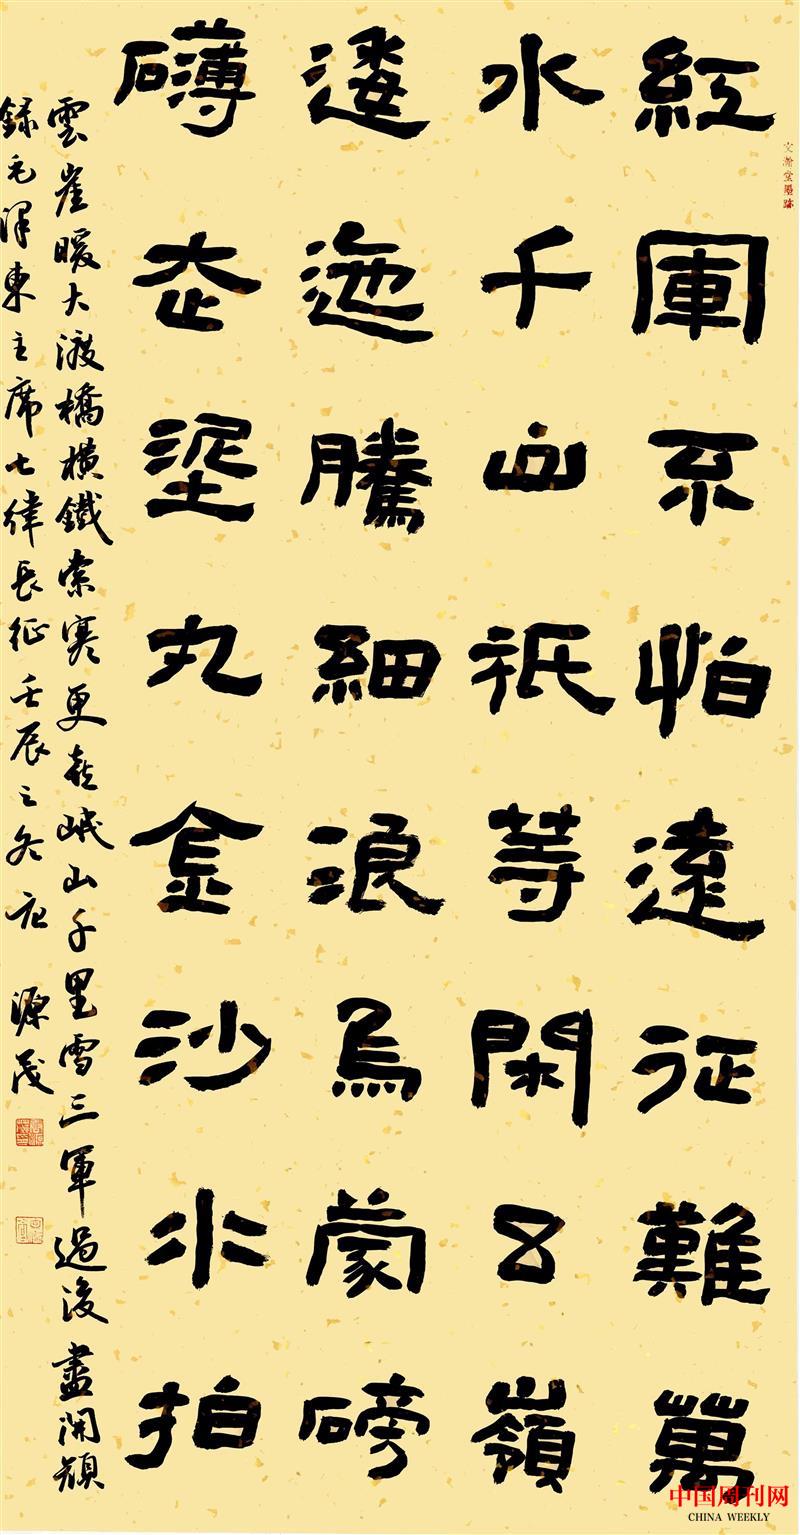 文瀚堂墨跡
紅軍不怕遠征難萬
水千山祇等閑五嶺
逶迤騰細浪烏蒙磅
礴走埿丸金沙水拍
雲崖暖大渡橋橫鐵索寒更喜岷山千里雪三軍過後盡開顏
錄毛澤東主席七律長征壬辰之冬 源茂
中国周刊网
CHINA WEEKLY